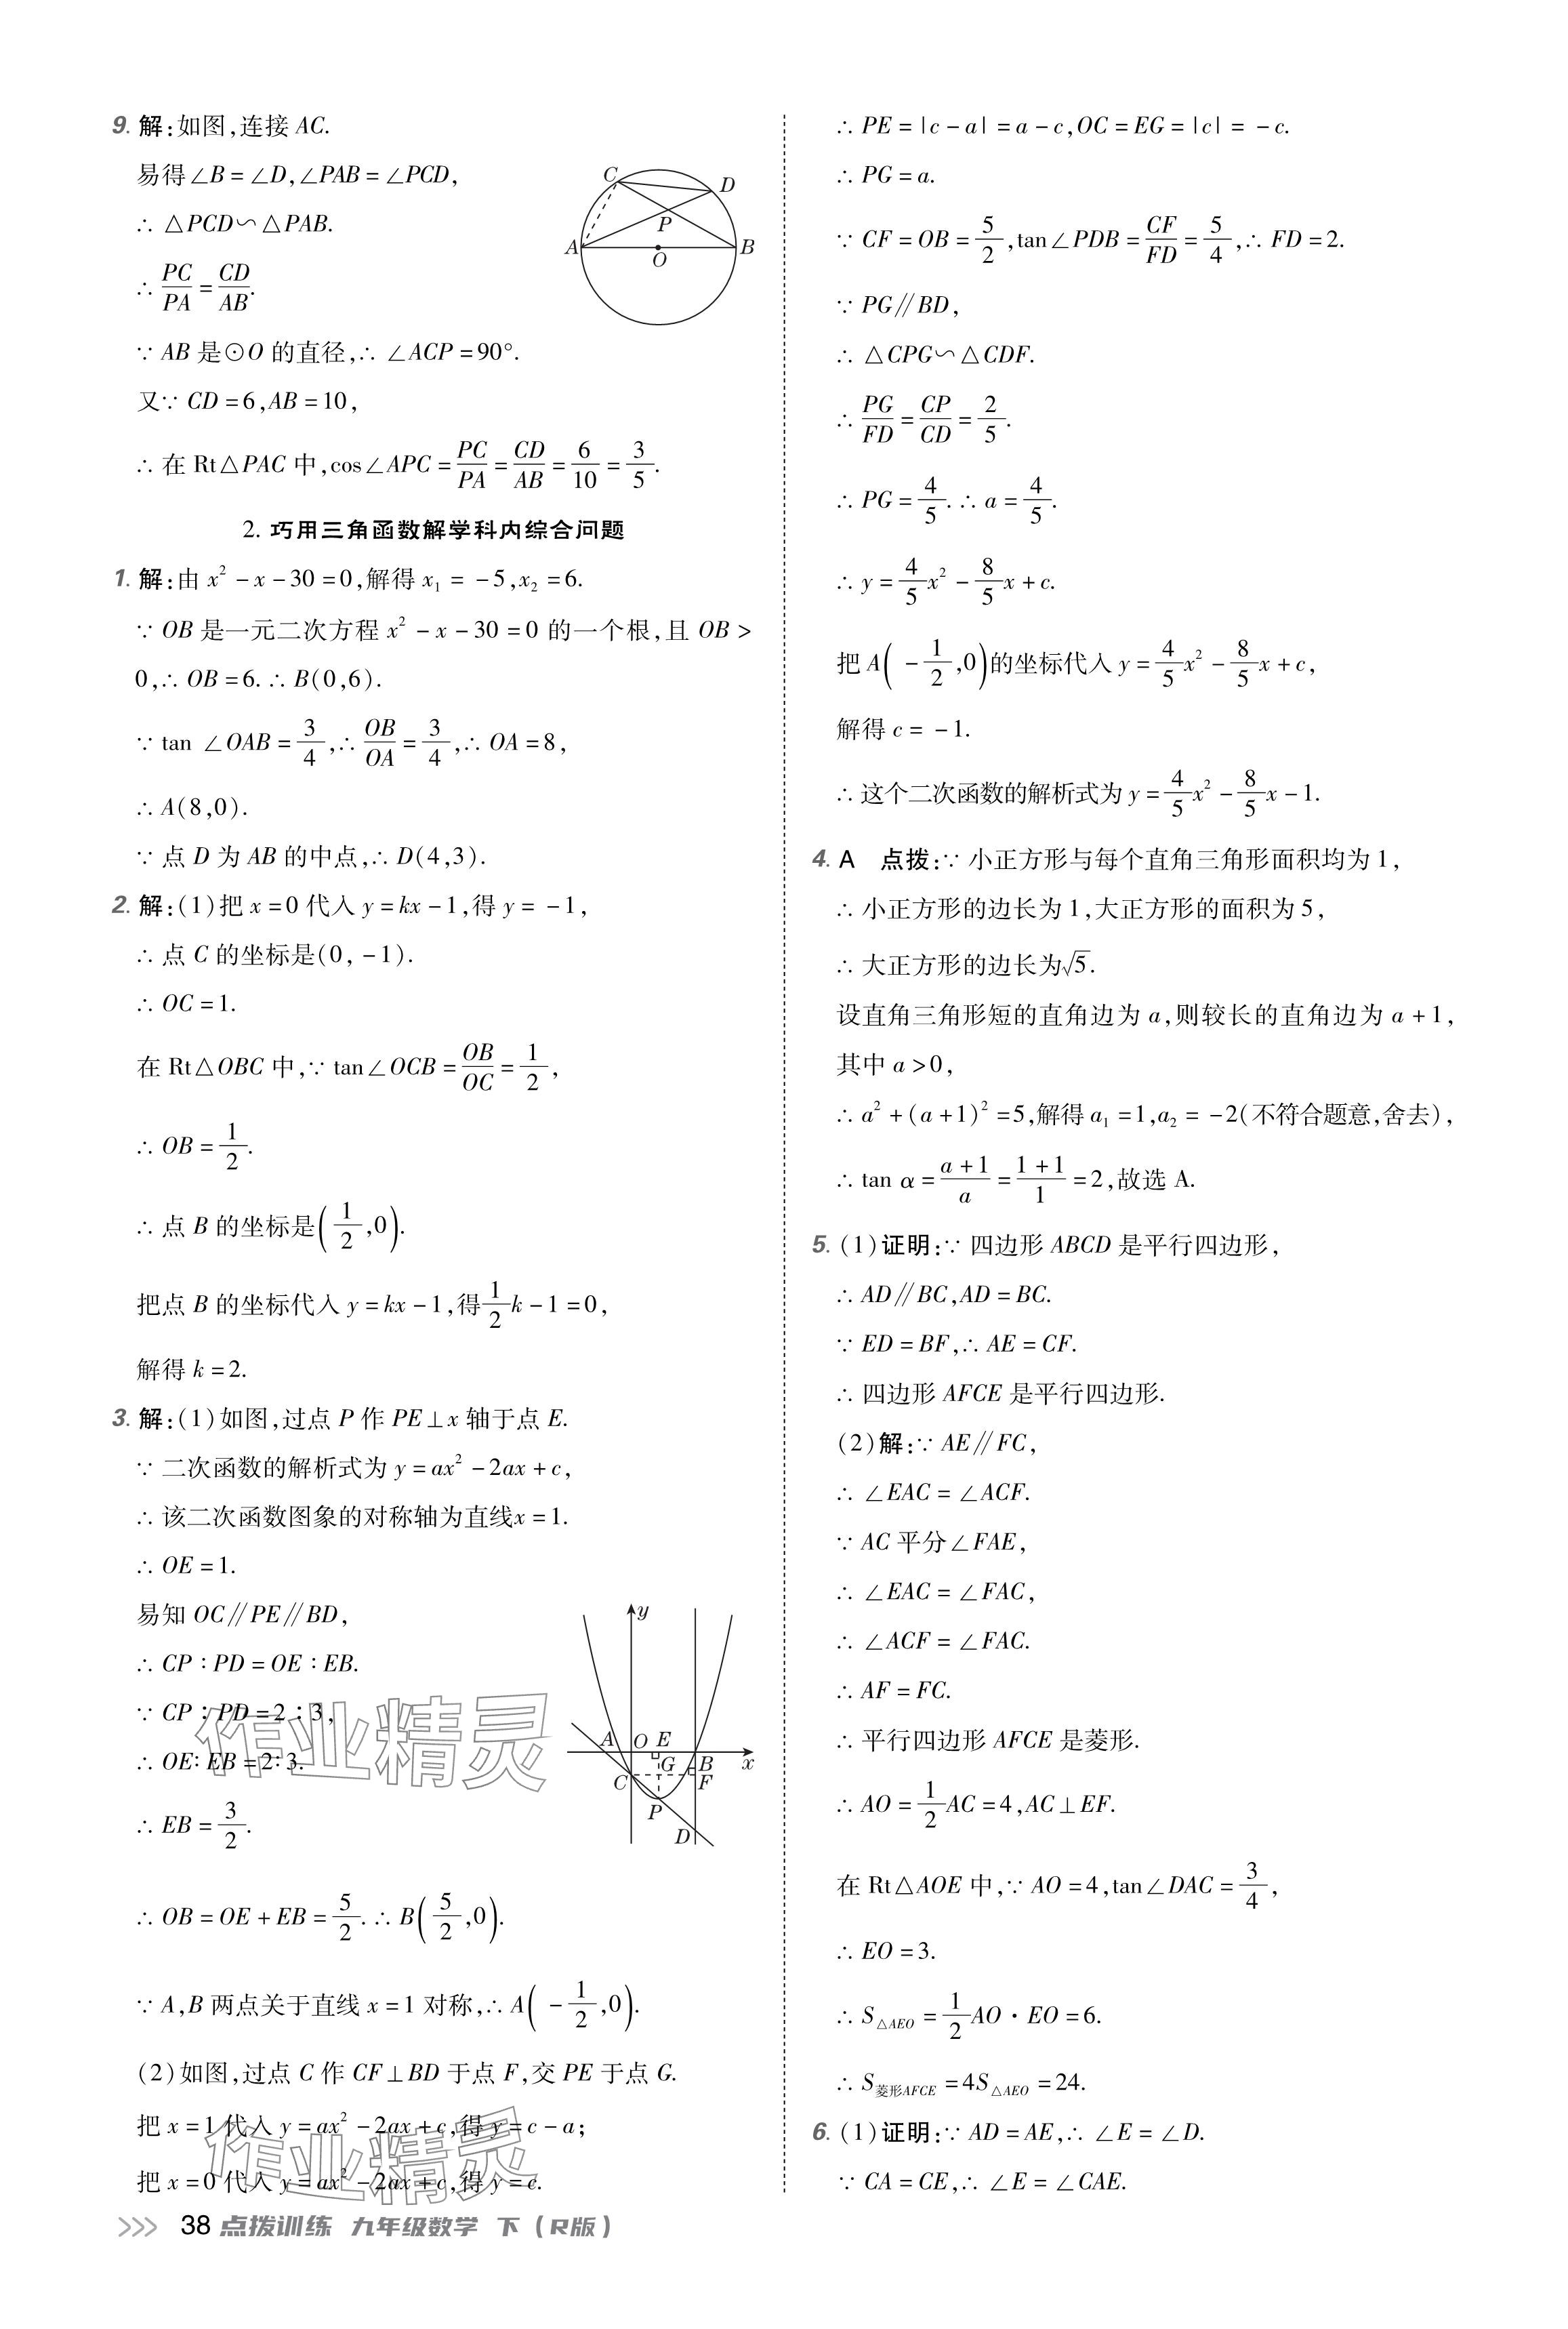 9. 解:如图,连接 AC.
易得∠B=∠D,∠PAB=∠PCD,
∴ △PCD∽△PAB.
∴ PC/PA = CD/AB.
∵ AB 是⊙O 的直径,∴ ∠ACP=90°.
又∵ CD=6,AB=10,
∴ 在 Rt△PAC 中,cos∠APC = PC/PA = CD/AB = 6/10 = 3/5.
C
D
P
A
O
B
2. 巧用三角函数解学科内综合问题
1. 解:由 x²-x-30=0,解得 x₁=-5,x₂=6.
∵ OB 是一元二次方程 x²-x-30=0 的一个根,且 OB>
0,∴ OB=6.∴ B(0,6).
∵ tan ∠OAB = 3/4,∴ OB/OA = 3/4,∴ OA=8,
∴ A(8,0).
∵ 点 D 为 AB 的中点,∴ D(4,3).
2. 解:(1)把 x=0 代入 y=kx-1,得 y=-1,
∴ 点 C 的坐标是(0,-1).
∴ OC=1.
在 Rt△OBC 中,∵ tan∠OCB = OB/OC = 1/2,
∴ OB = 1/2.
∴ 点 B 的坐标是(1/2,0).
把点 B 的坐标代入 y=kx-1,得 1/2 k-1=0,
解得 k=2.
3. 解:(1)如图,过点 P 作 PE⊥x 轴于点 E.
∵ 二次函数的解析式为 y=ax²-2ax+c,
∴ 该二次函数图象的对称轴为直线x=1.
∴ OE=1.
易知 OC∥PE∥BD,
∴ CP∶PD=OE∶EB.
∵ CP∶PD=2∶3,
∴ OE∶EB=2∶3.
∴ EB = 3/2.
y
A O E
G B x
C F
P
D
∴ OB=OE+EB = 5/2.∴ B(5/2,0).
∵ A,B 两点关于直线 x=1 对称,∴ A(-1/2,0).
(2)如图,过点 C 作 CF⊥BD 于点 F,交 PE 于点 G.
把 x=1 代入 y=ax²-2ax+c,得 y=c-a;
把 x=0 代入 y=ax²-2ax+c,得 y=c.
∴ PE=|c-a|=a-c,OC=EG=|c|=-c.
∴ PG=a.
∵ CF=OB = 5/2,tan∠PDB = CF/FD = 5/4,∴ FD=2.
∵ PG∥BD,
∴ △CPG∽△CDF.
∴ PG/FD = CP/CD = 2/5.
∴ PG = 4/5.∴ a = 4/5.
∴ y = 4/5 x² - 8/5 x+c.
把 A(-1/2,0)的坐标代入 y = 4/5 x² - 8/5 x+c,
解得 c=-1.
∴ 这个二次函数的解析式为 y = 4/5 x² - 8/5 x-1.
4. A 点拨:∵ 小正方形与每个直角三角形面积均为 1,
∴ 小正方形的边长为 1,大正方形的面积为 5,
∴ 大正方形的边长为√5.
设直角三角形短的直角边为 a,则较长的直角边为 a+1,
其中 a>0,
∴ a²+(a+1)²=5,解得 a₁=1,a₂=-2(不符合题意,舍去),
∴ tan α = (a+1)/a = (1+1)/1 =2,故选 A.
5. (1)证明:∵ 四边形 ABCD 是平行四边形,
∴ AD∥BC,AD=BC.
∵ ED=BF,∴ AE=CF.
∴ 四边形 AFCE 是平行四边形.
(2)解:∵ AE∥FC,
∴ ∠EAC=∠ACF.
∵ AC 平分∠FAE,
∴ ∠EAC=∠FAC,
∴ ∠ACF=∠FAC.
∴ AF=FC.
∴ 平行四边形 AFCE 是菱形.
∴ AO = 1/2 AC=4,AC⊥EF.
在 Rt△AOE 中,∵ AO=4,tan∠DAC = 3/4,
∴ EO=3.
∴ S△AEO = 1/2 AO·EO=6.
∴ S菱形AFCE=4S△AEO=24.
6. (1)证明:∵ AD=AE,∴ ∠E=∠D.
∵ CA=CE,∴ ∠E=∠CAE.
作业精灵
作业精灵
38 点拨训练 九年级数学 下(R版)